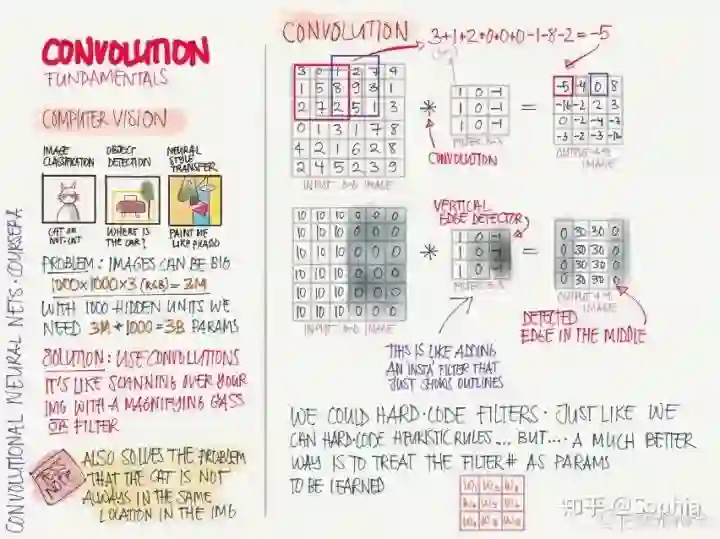 CONVOLUTIONAL NEURAL NETS · COURSERA
CONVOLUTION
FUNDAMENTALS
COMPUTER VISION
IMAGE CLASSIFICATION
OBJECT DETECTION
NEURAL STYLE TRANSFER
CAT OR NOT-CAT
WHERE IS THE CAR?
PAINT ME LIKE PICASSO
PROBLEM: IMAGES CAN BE BIG
1000×1000×3 (RGB) = 3M
WITH 1000 HIDDEN UNITS WE
NEED 3M * 1000 = 3B PARAMS
SOLUTION: USE CONVOLUTIONS
IT'S LIKE SCANNING OVER YOUR
IMG WITH A MAGNIFYING GLASS
OR FILTER
ALSO SOLVES THE PROBLEM
THAT THE CAT IS NOT
ALWAYS IN THE SAME
LOCATION IN THE IMG
CONVOLUTION
3+1+2+0+0+0-1-8-2=-5
3 0 1 2 7 4
1 5 8 9 3 1
2 7 2 5 1 3
0 1 3 1 7 8
4 2 1 6 2 8
2 4 5 2 3 9
INPUT 6×6 IMAGE
*
1 0 -1
1 0 -1
1 0 -1
FILTER 3×3
CONVOLUTION
=
-5 -4 0 8
-10 -2 2 3
0 -2 -4 -7
-3 -2 -3 -16
OUTPUT 4×4
IMAGE
10 10 10 0 0 0
10 10 10 0 0 0
10 10 10 0 0 0
10 10 10 0 0 0
10 10 10 0 0 0
10 10 10 0 0 0
INPUT 6×6 IMAGE
*
VERTICAL
EDGE DETECTOR
1 0 -1
1 0 -1
1 0 -1
FILTER 3×3
=
0 30 30 0
0 30 30 0
0 30 30 0
0 30 30 0
OUTPUT 4×4
IMAGE
THIS IS LIKE ADDING
AN INSTA' FILTER THAT
JUST SHOWS OUTLINES
DETECTED
EDGE IN THE MIDDLE
WE COULD HARD-CODE FILTERS · JUST LIKE WE
CAN HARD-CODE HEURISTIC RULES... BUT... A MUCH BETTER
WAY IS TO TREAT THE FILTER# AS PARAMS
TO BE LEARNED
W₁ W₂ W₃
W₄ W₅ W₆
W₇ W₈ W₉
知乎 @Sophia